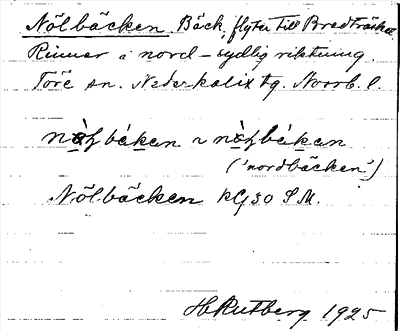 Nölbäcken. Bäck, flyter till Bredträsket.
Rinner i nord-sydlig riktning.
Töre sn. Nederkalix tg. Norrb. l.
("nordbäcken")
Nölbäcken kG30 S.M.
H Rutberg 1925